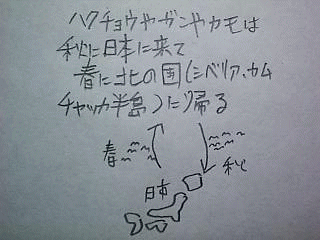 ハクチョウやガンやカモは
秋に日本に来て
春に北の国(シベリア、カム
チャッカ半島)に帰る
春
秋
日本